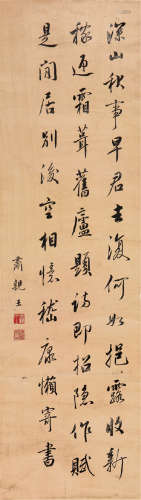 深山秋事早君去復何如挹露收新
稼迎霜葺舊廬題詩即招隱作賦
是閒居別後空相憶嵇康懶寄書
肅親王